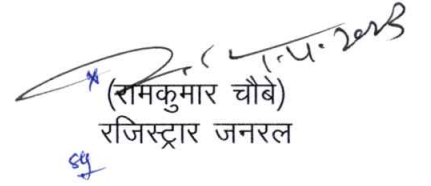 1.4.2023
(रामकुमार चौबे)
रजिस्ट्रार जनरल